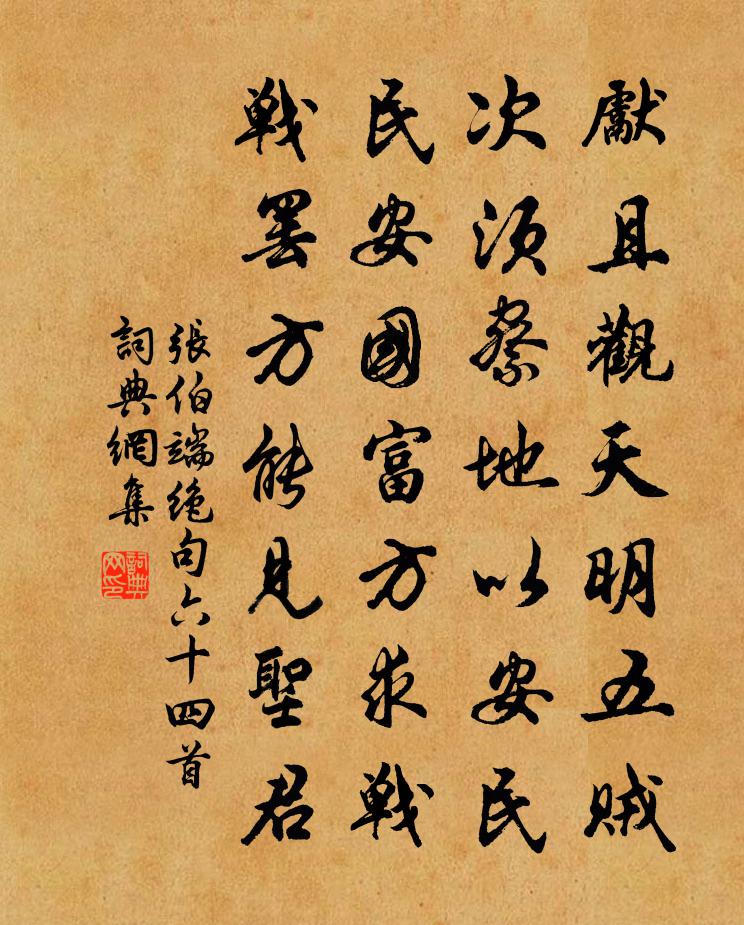 獻且觀天明五賊
次須察地以安民
民安國富方求戰
戰罷方能見聖君
張伯端絕句六十四首
詞典網集
詞典网印